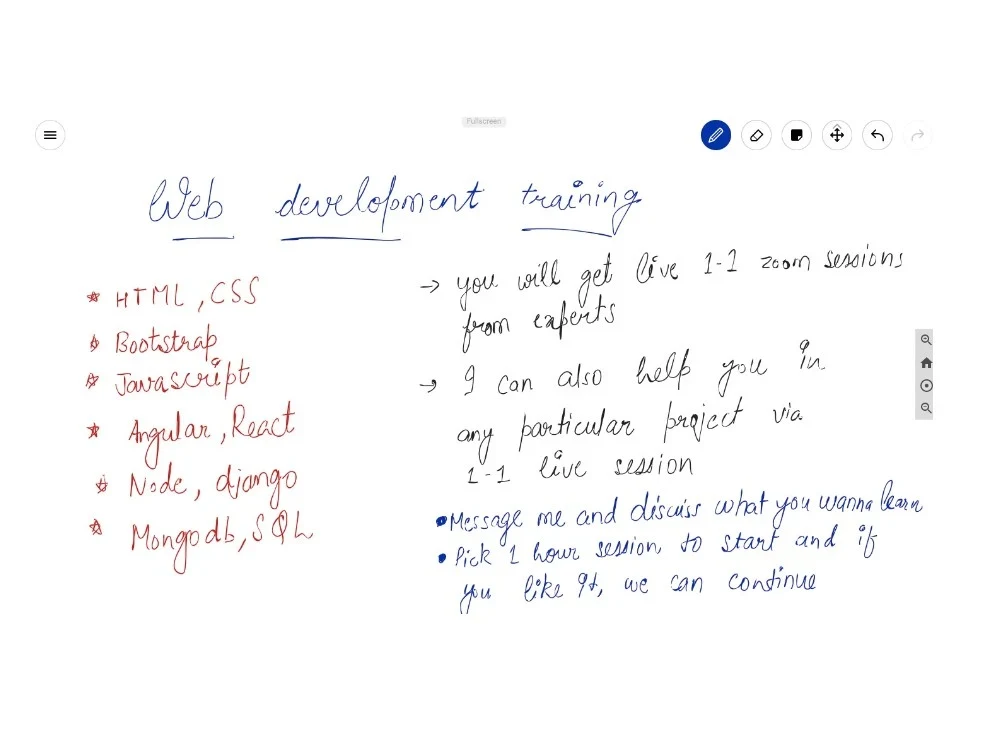 Fullscreen
Web development training
* HTML, CSS
* Bootstrap
* Javascript
* Angular, React
* Node, django
* Mongodb, SQL
→ you will get live 1-1 zoom sessions
from experts
→ I can also help you in
any particular project via
1-1 live session
• Message me and discuss what you wanna learn
• Pick 1 hour session to start and if
you like It, we can continue